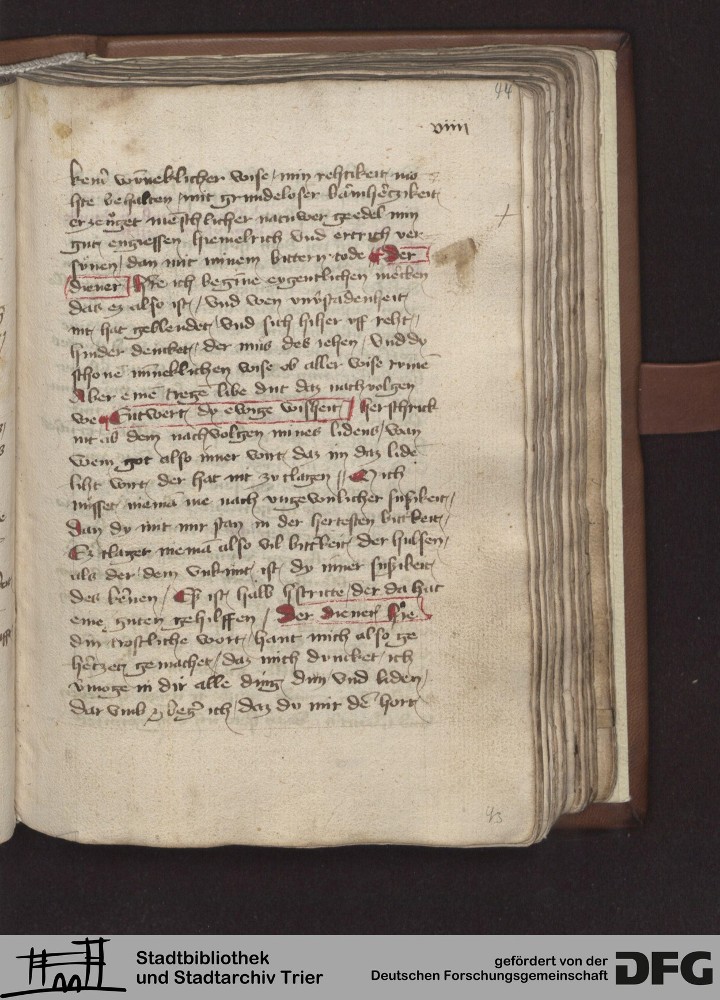 44
viiii
kein vnmneklicher wise / min rehtikeit mo
hte behalten / mit grundeloser barmhertzikeit
erzeuget menschlicher natuwer geedel min
gut engiessen hiemelrich vnd ertrich ver
sünen / dan mit minem bittern tode der
diener / He ich begine eygentlichen mercken
daz ez also ist / vnd wen vnvstadenheit
nit hat geblendet / vnd sich hiher vff reht /
hinder dencket / der mus des iehen / vnd dy
schone minneklichen wise ob aller wise
Aber eine trege libe dut daz nachvolgen
we Entwert dy ewige wisheit / herschrick
nit ab dem nachvolgen mines lidens / wan
wem got also inner wirt / daz im daz lide
liht wirt / der hat nit zu clagen // Mich
nüsset nieman me nach vngewonlicher susikeit /
Dan dy mit mir stan in der hertesten bitterkeit /
Ez claget nieman also vil bitterkeit der hulsen /
als der dem vnkunt ist dy inner susikeit
des kernen / Es ist halb gstritte / der da hat
eine guten gehilffen / Der diener / Hie
din trostliche wort / hant mich also ge
hertzet gemachet / daz mich duncket / ich
vmoge in dir alle ding dun vnd liden /
Dar vmb beger ich / daz dv mir de hort
Stadtbibliothek
und Stadtarchiv Trier
gefördert von der
Deutschen Forschungsgemeinschaft
DFG